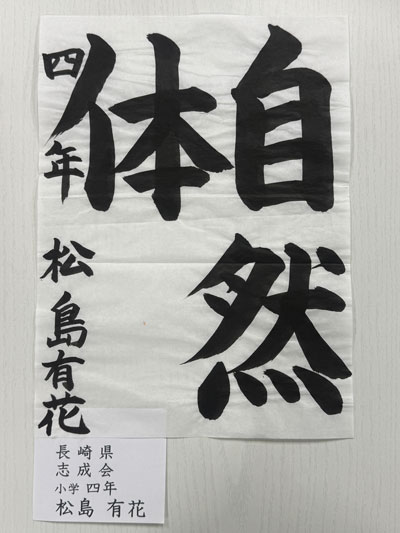 自然
体
四年 松島有花
長崎県
志成会
小学 四年
松島 有花